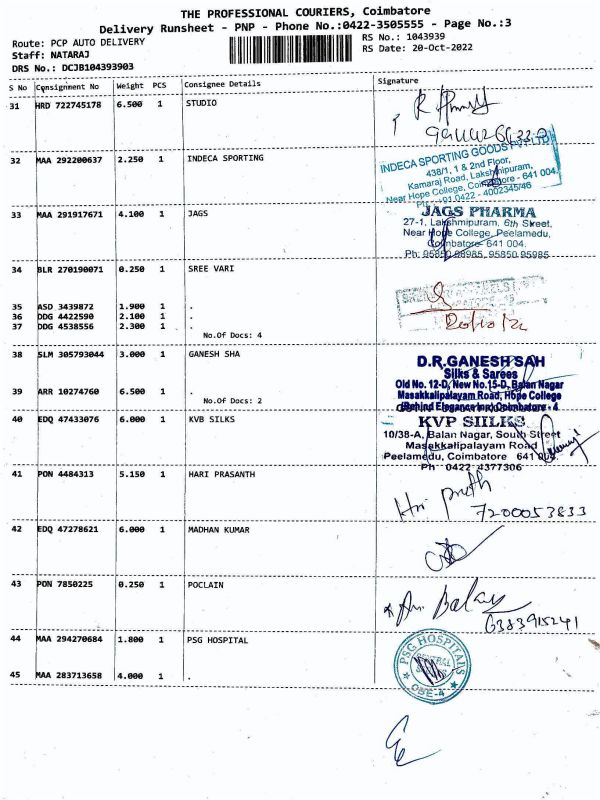 THE PROFESSIONAL COURIERS, Coimbatore
Delivery Runsheet - PNP - Phone No.:0422-3505555 - Page No.:3
Route: PCP AUTO DELIVERY
RS No.: 1043939
Staff: NATARAJ
RS Date: 20-Oct-2022
DRS No.: DCJB104393903
S No Consignment No Weight PCS Consignee Details Signature
31 HRD 722745178 6.500 1 STUDIO
32 MAA 292200637 2.250 1 INDECA SPORTING
INDECA SPORTING GOODS PVT LTD
438/1, 1 & 2nd Floor,
Kamaraj Road, Lakshmipuram,
Near Hope College, Coimbatore - 641 004.
Ph: +91 0422 - 4002345/46
33 MAA 291917671 4.100 1 JAGS
JAGS PHARMA
27-1, Lakshmipuram, 6th Street,
Near Hope College, Peelamedu,
Coimbatore- 641 004.
Ph: 95850 98985, 95850 95985
34 BLR 270190071 0.250 1 SREE VARI
35 ASD 3439872 1.900 1 .
36 DDG 4422590 2.100 1 .
37 DDG 4538556 2.300 1 .
No.Of Docs: 4
38 SLM 305793044 3.000 1 GANESH SHA
D.R.GANESH SAH
Silks & Sarees
Old No. 12-D, New No.15-D, Balan Nagar
Masakkalipalayam Road, Hope College
(Behind Elegance Inn) Coimbatore - 4
39 ARR 10274760 6.500 1 .
No.Of Docs: 2
40 EDQ 47433076 6.000 1 KVB SILKS
KVP SIILKS
10/38-A, Balan Nagar, South Street
Masakkalipalayam Road
Peelamedu, Coimbatore 641 004.
Ph 0422-4377306
41 PON 4484313 5.150 1 HARI PRASANTH
7200053833
42 EDQ 47278621 6.000 1 MADHAN KUMAR
43 PON 7850225 0.250 1 POCLAIN
6383915241
44 MAA 294270684 1.800 1 PSG HOSPITAL
PSG HOSPITALS
CENTRAL
CBE-4
45 MAA 283713658 4.000 1 .